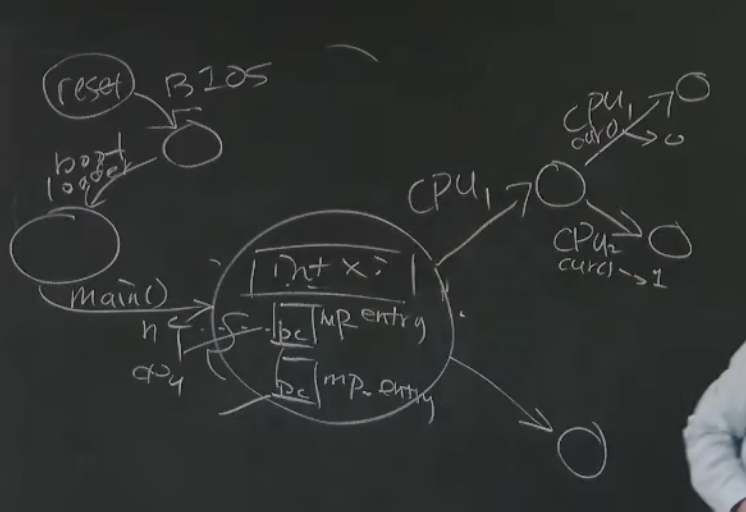 reset
BIOS
boot
loader
main()
int x;
pc mp entry
pc mp_entry
n
CPU1
CPU1
cur() → 0
CPU2
cur() → 1